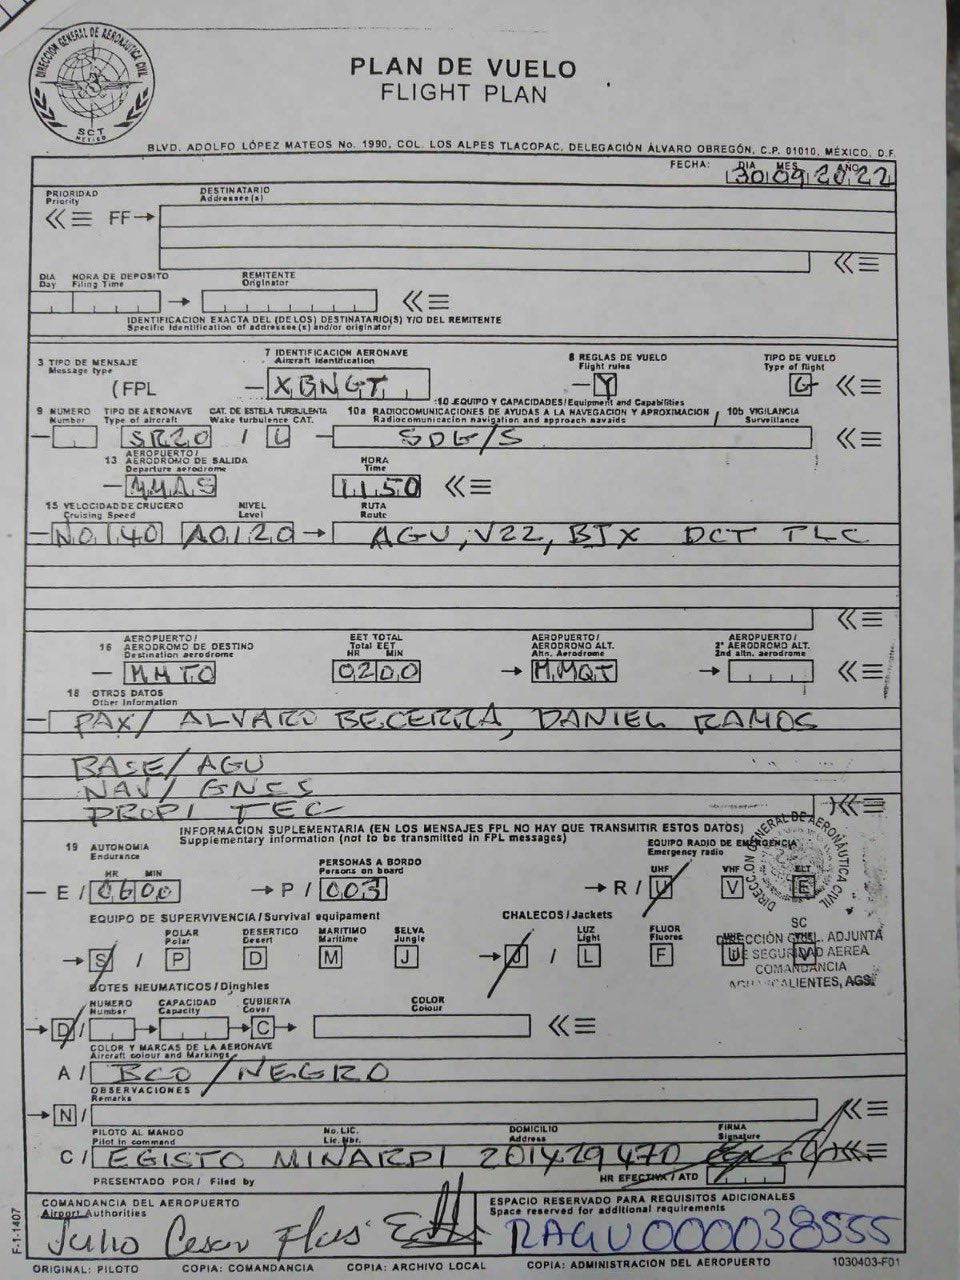 DIRECCION GENERAL DE AERONAUTICA CIVIL
SCT
MEXICO
PLAN DE VUELO
FLIGHT PLAN
BLVD. ADOLFO LÓPEZ MATEOS No. 1990, COL. LOS ALPES TLACOPAC, DELEGACIÓN ÁLVARO OBREGÓN, C.P. 01010, MÉXICO, D.F.
FECHA: DIA MES AÑO
30 09 2022
PRIORIDAD DESTINATARIO
Priority Addressee(s)
<<≡ FF→
<<≡
DIA HORA DE DEPOSITO REMITENTE
Day Filing Time Originator
→ <<≡
IDENTIFICACION EXACTA DEL (DE LOS) DESTINATARIO(S) Y/O DEL REMITENTE
Specific Identification of addressee(s) and/or originator
3 TIPO DE MENSAJE 7 IDENTIFICACION AERONAVE 8 REGLAS DE VUELO TIPO DE VUELO
Message type Aircraft Identification Flight rules Type of flight
(FPL – XBNGT – Y G <<≡
10 EQUIPO Y CAPACIDADES/Equipment and Capabilities
9 NUMERO TIPO DE AERONAVE CAT. DE ESTELA TURBULENTA 10a RADIOCOMUNICACIONES DE AYUDAS A LA NAVEGACION Y APROXIMACION 10b VIGILANCIA
Number Type of aircraft Wake turbulence CAT. Radiocomunication navigation and approach navaids Surveillance
– SR20 / L – SDG/S <<≡
13 AEROPUERTO/ AERODROMO DE SALIDA HORA
Departure aerodrome Time
– MMAS 1150 <<≡
15 VELOCIDAD DE CRUCERO NIVEL RUTA
Cruising Speed Level Route
– N0140 A0120 → AGU, V22, BJX DCT TLC
<<≡
16 AEROPUERTO/ AERODROMO DE DESTINO EET TOTAL AEROPUERTO/ AERODROMO ALT. AEROPUERTO/ 2º AERODROMO ALT.
Destination aerodrome Total EET HR MIN Altn. Aerodrome 2nd altn. aerodrome
– MMTO 0200 → MMQT → <<≡
18 OTROS DATOS
Other Information
– PAX/ ALVARO BECERRA, DANIEL RAMOS
BASE/ AGU
NAV/ GNSS
PROP/ TEC
)<<≡
INFORMACION SUPLEMENTARIA (EN LOS MENSAJES FPL NO HAY QUE TRANSMITIR ESTOS DATOS)
Supplementary information (not to be transmitted in FPL messages)
19 AUTONOMIA PERSONAS A BORDO EQUIPO RADIO DE EMERGENCIA
Endurance Persons on board Emergency radio
HR MIN UHF VHF ELT
– E / 0600 → P / 003 → R / U V E
DIRECCION GENERAL DE AERONAUTICA CIVIL
EQUIPO DE SUPERVIVENCIA/Survival equipament CHALECOS/Jackets
SC
POLAR DESERTICO MARITIMO SELVA LUZ FLUOR UHF VHF
Polar Desert Maritime Jungle Light Fluores
→ S / P D M J → J / L F U V
DIRECCIÓN GRAL. ADJUNTA
DE SEGURIDAD AEREA
COMANDANCIA
AGUASCALIENTES, AGS.
BOTES NEUMATICOS/Dinghies
NUMERO CAPACIDAD CUBIERTA COLOR
Number Capacity Cover Colour
→ D / → → C → <<≡
COLOR Y MARCAS DE LA AERONAVE
Aircraft colour and Markings
A / BCO / NEGRO
OBSERVACIONES
Remarks
→ N / <<≡
PILOTO AL MANDO No. LIC. DOMICILIO FIRMA
Pilot in command Lic. Nbr. Address Signature
C / EGISTO MINARDI 201429470 <<≡
PRESENTADO POR/ Filed by HR EFECTIVA / ATD
COMANDANCIA DEL AEROPUERTO ESPACIO RESERVADO PARA REQUISITOS ADICIONALES
Airport Authorities Space reserved for additional requirements
Julio Cesar RAGU000038555
F-1-1407
ORIGINAL: PILOTO COPIA: COMANDANCIA COPIA: ARCHIVO LOCAL COPIA: ADMINISTRACION DEL AEROPUERTO 1030403-F01